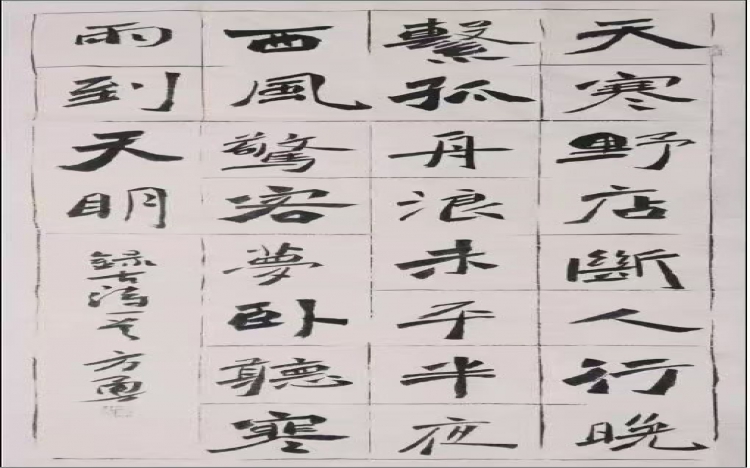 天寒野店斷人行晚
繫孤舟浪未平半夜
西風驚客夢臥聽寒
雨到天明
錄古詩一首 方